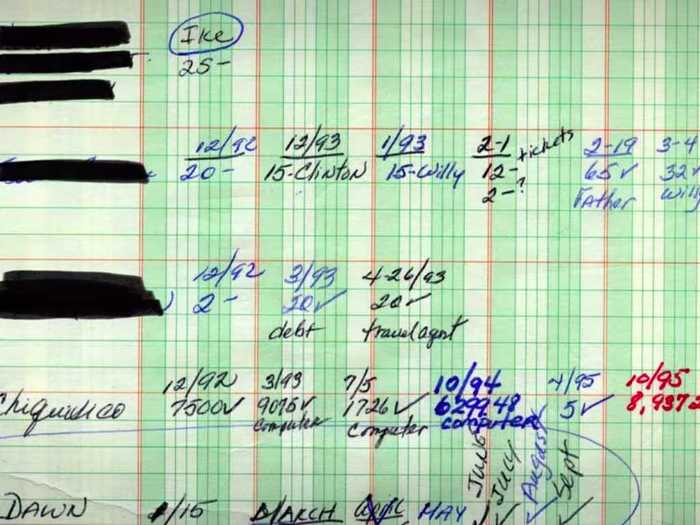 Ike
25-
12/92 12/93 1/93 2-1 tickets 2-19 3-4
20- 15-Clinton 15-Willy 12- 65✓ 32✓
2-? Father
12/92 3/93 4-26/93
2- 20✓ 20✓
debt travel agent
12/92 3/93 7/5 10/94 4/95 10/95
7500✓ 9075✓ 1726✓ 5✓
computer computer computer
June July August Sept
DAWN 1/15 MARCH April MAY